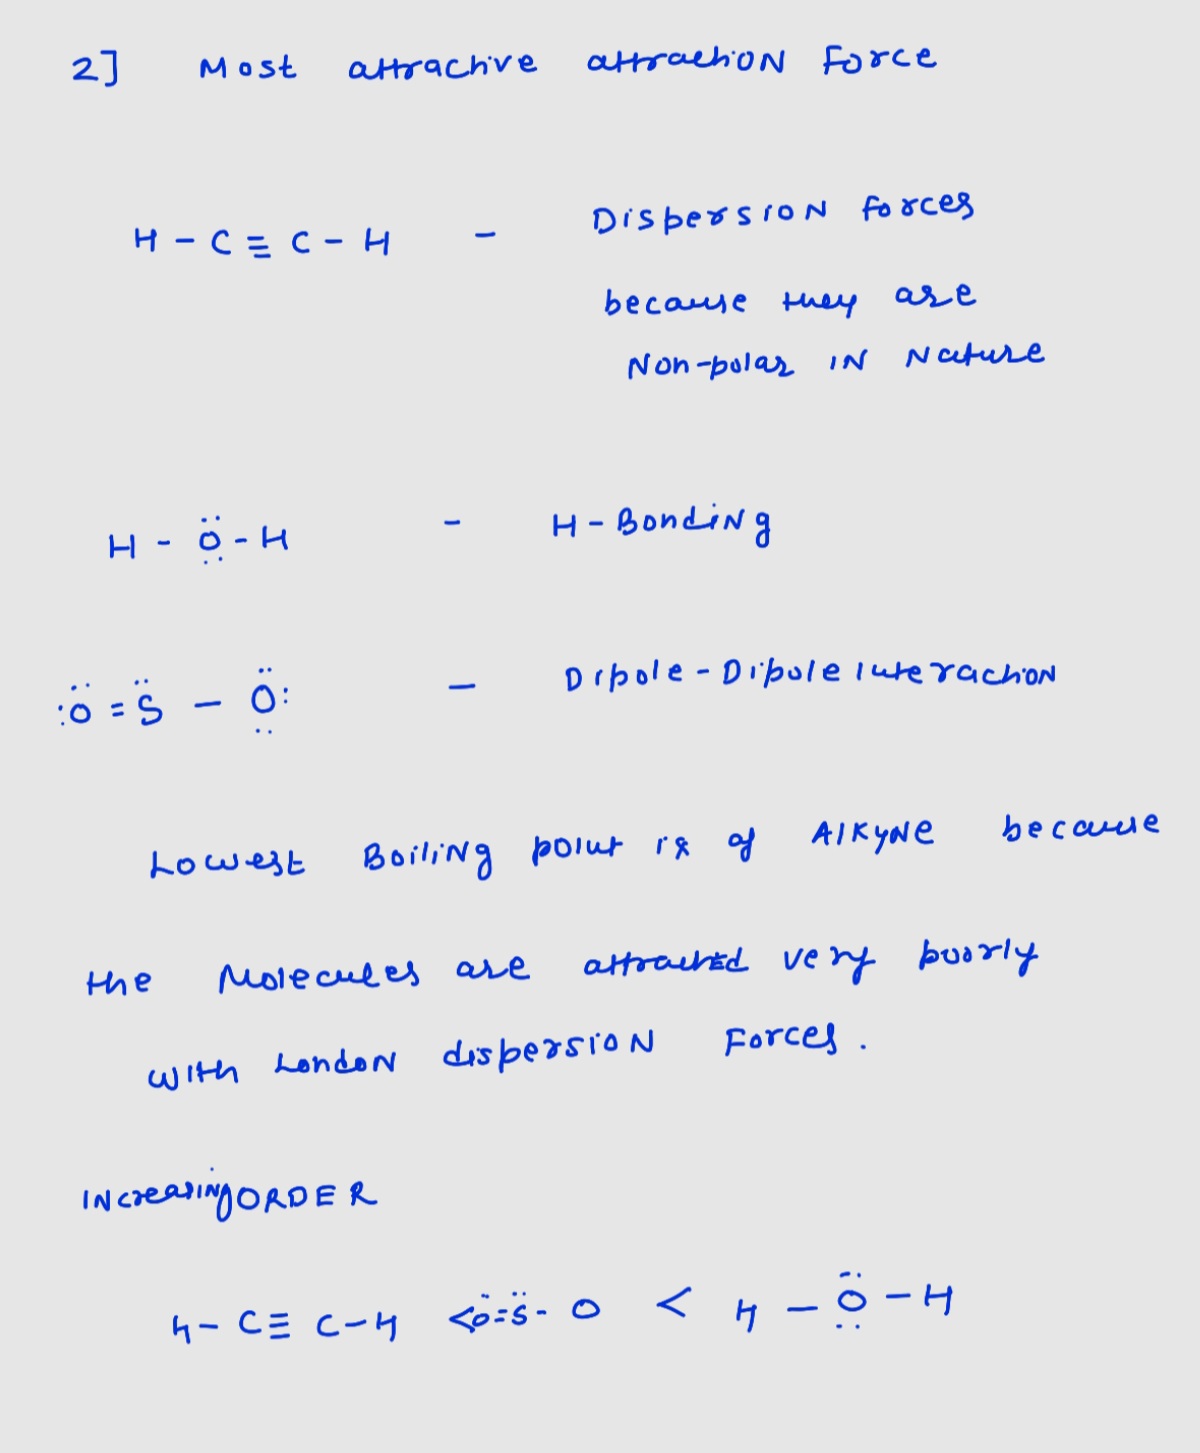 2] Most attractive attraction Force
H - C ≡ C - H - Dispersion forces
because they are
Non-polar in Nature
H - Ö - H - H - Bonding
:Ö = S̈ - Ö: - Dipole - Dipole interaction
Lowest Boiling point is of Alkyne because
the Molecules are attracted very poorly
with London dispersion Forces.
Increasing ORDER
H - C ≡ C - H < Ö = S̈ - O < H - Ö - H